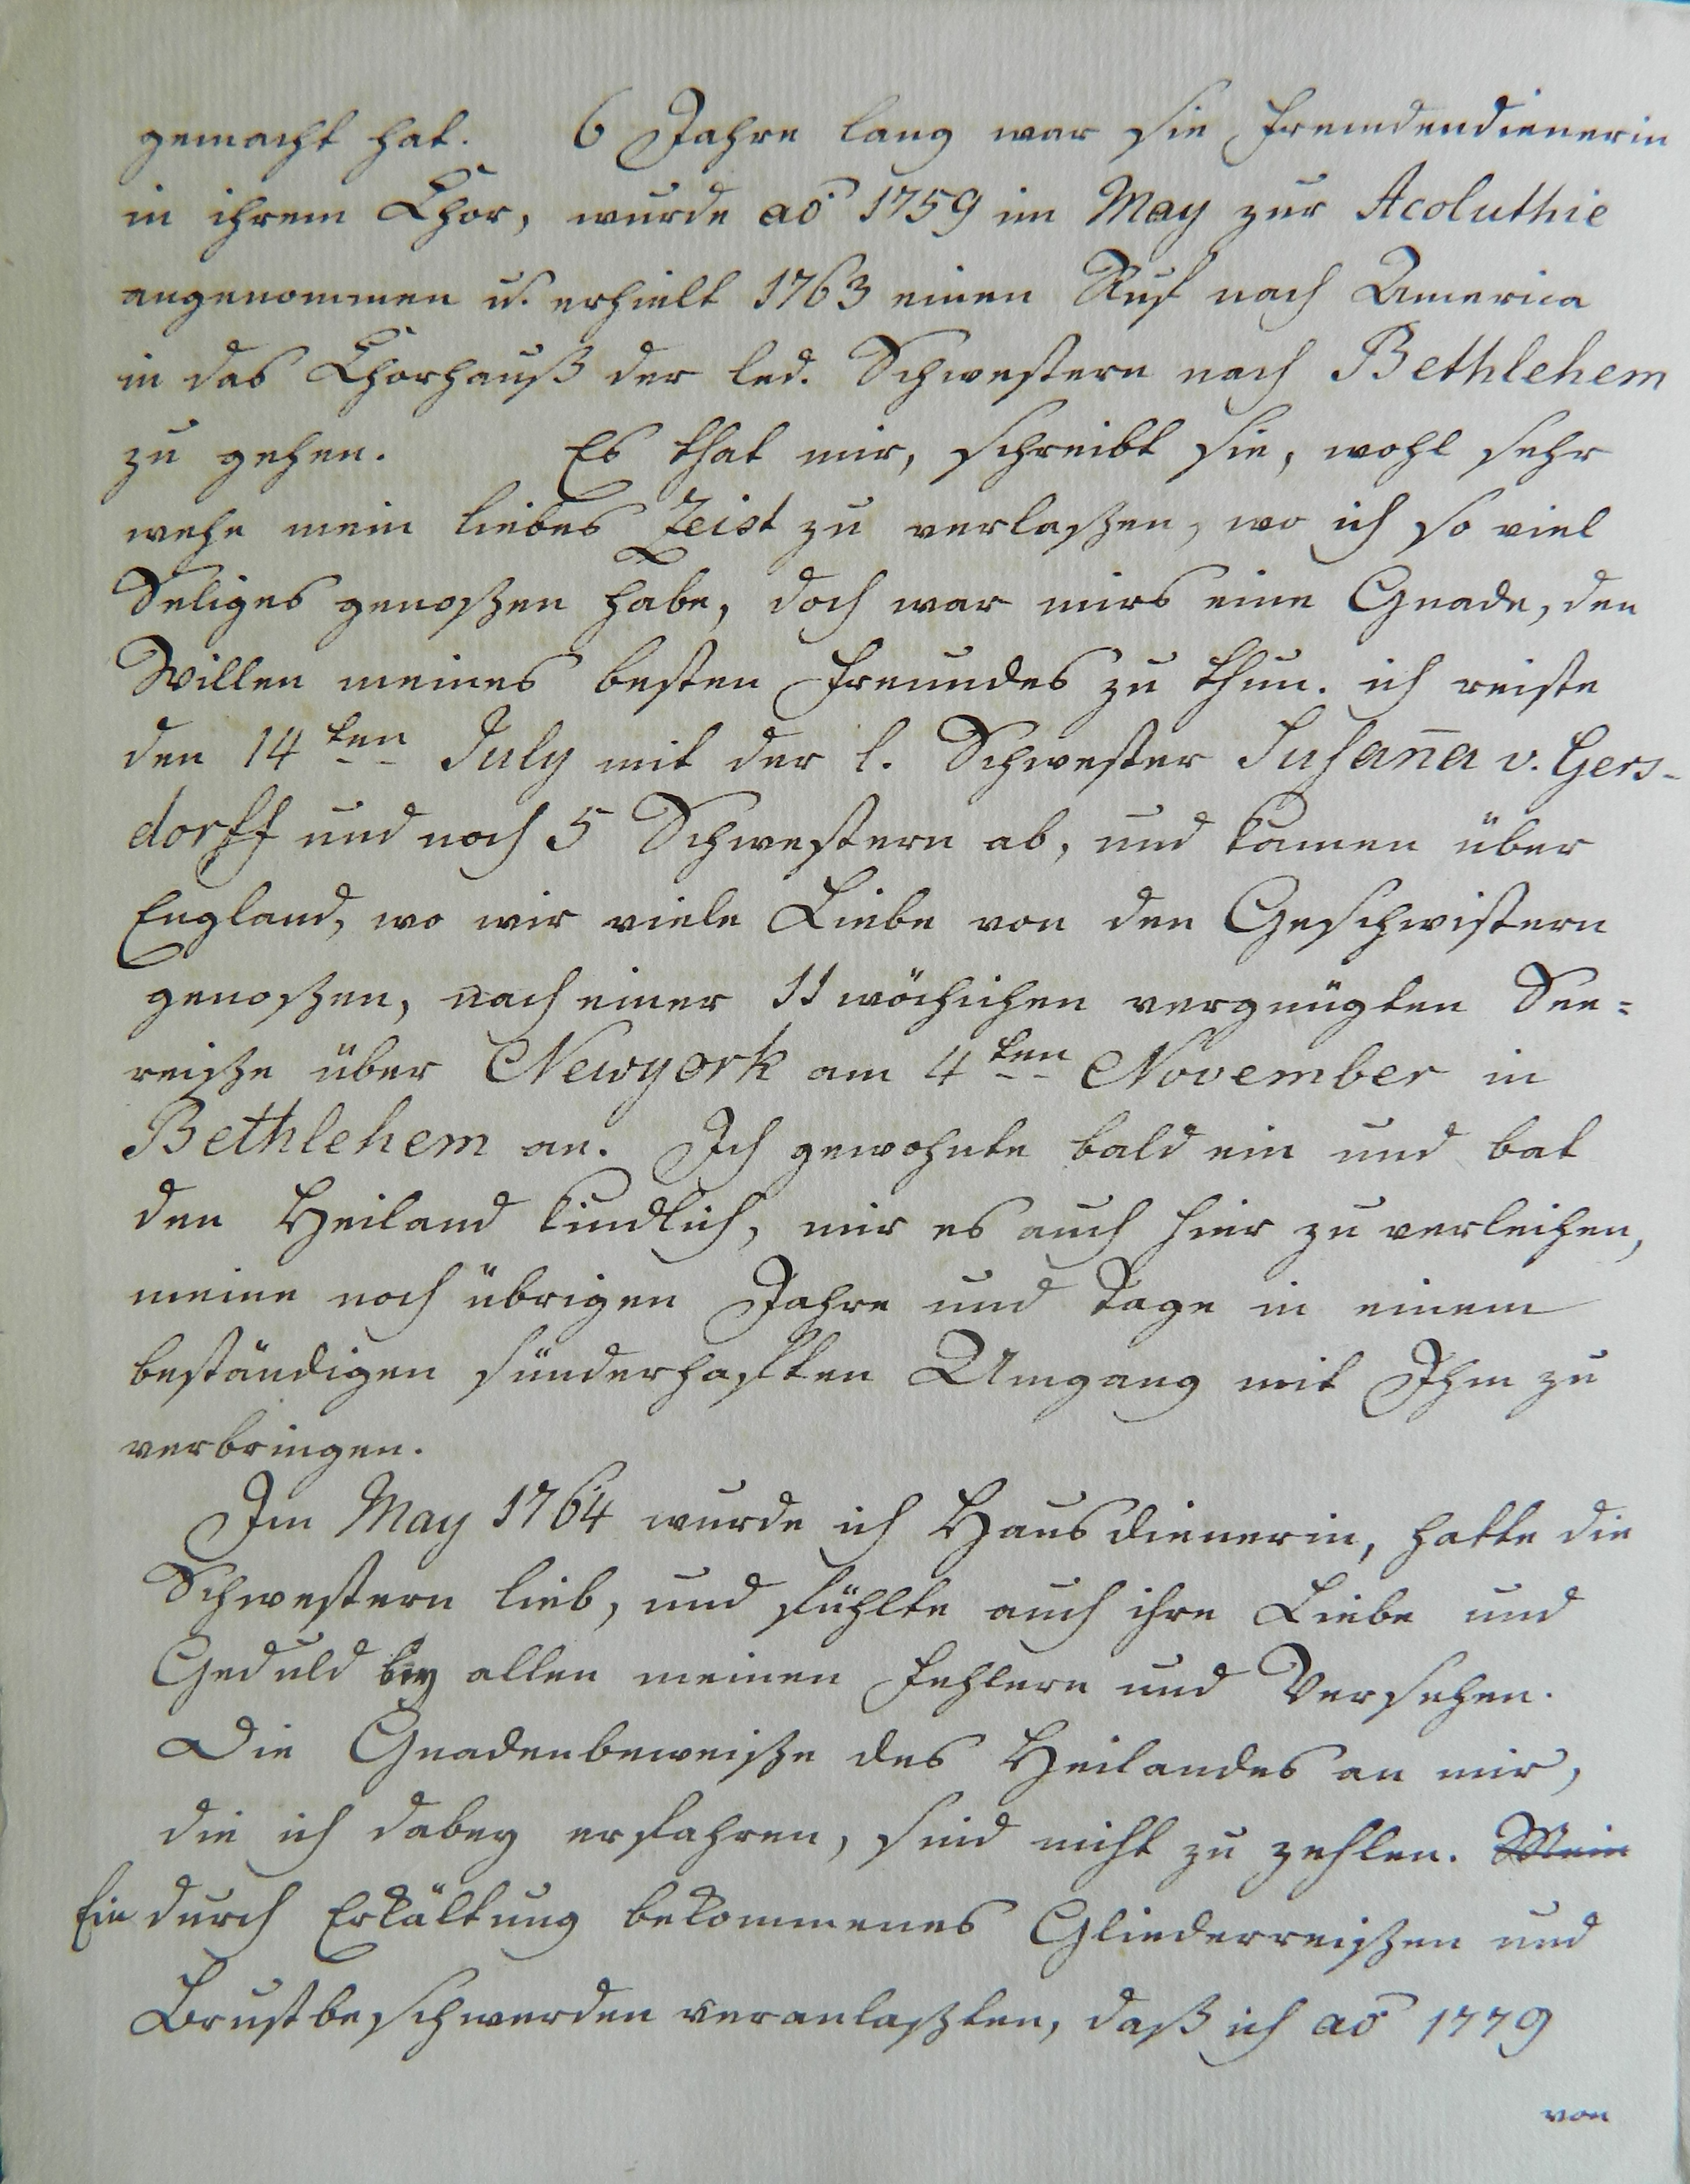 gemacht hat. 6 Jahre lang war sie Fremdendienerin
in ihrem Chor, wurde ao 1759 im May zur Acoluthie
angenommen u. erhielt 1763 einen Ruf nach America
in das Chorhauß der led. Schwestern nach Bethlehem
zu gehen. Es that mir, schreibt sie, wohl sehr
wehe mein liebes Zeist zu verlaßen, wo ich so viel
Seliges genoßen habe, doch war mirs eine Gnade, den
Willen meines besten Freundes zu thun. ich reiste
den 14ten July mit der l. Schwester Susana v. Gers-
dorff und noch 5 Schwestern ab, und kamen über
England, wo wir viele Liebe von den Geschwistern
genoßen, nach einer 11 wöchichen vergnügten See=
reiße über Newyork am 4ten November in
Bethlehem an. Ich gewohnte bald ein und bat
den Heiland kindlich, mir es auch hier zu verleihen,
meine noch übrigen Jahre und Tage in einem
beständigen sünderhaften Umgang mit Ihm zu
verbringen.
Im May 1764 wurde ich Hausdienerin, hatte die
Schwestern lieb, und fühlte auch ihre Liebe und
Geduld bey allen meinen Fehlern und Versehen.
Die Gnadenbeweiße des Heilandes an mir,
die ich dabey erfahren, sind nicht zu zehlen. Mein
Ein durch Erkältung bekommenes Gliederreißen und
Brustbeschwerden veranlaßten, daß ich ao 1779
von